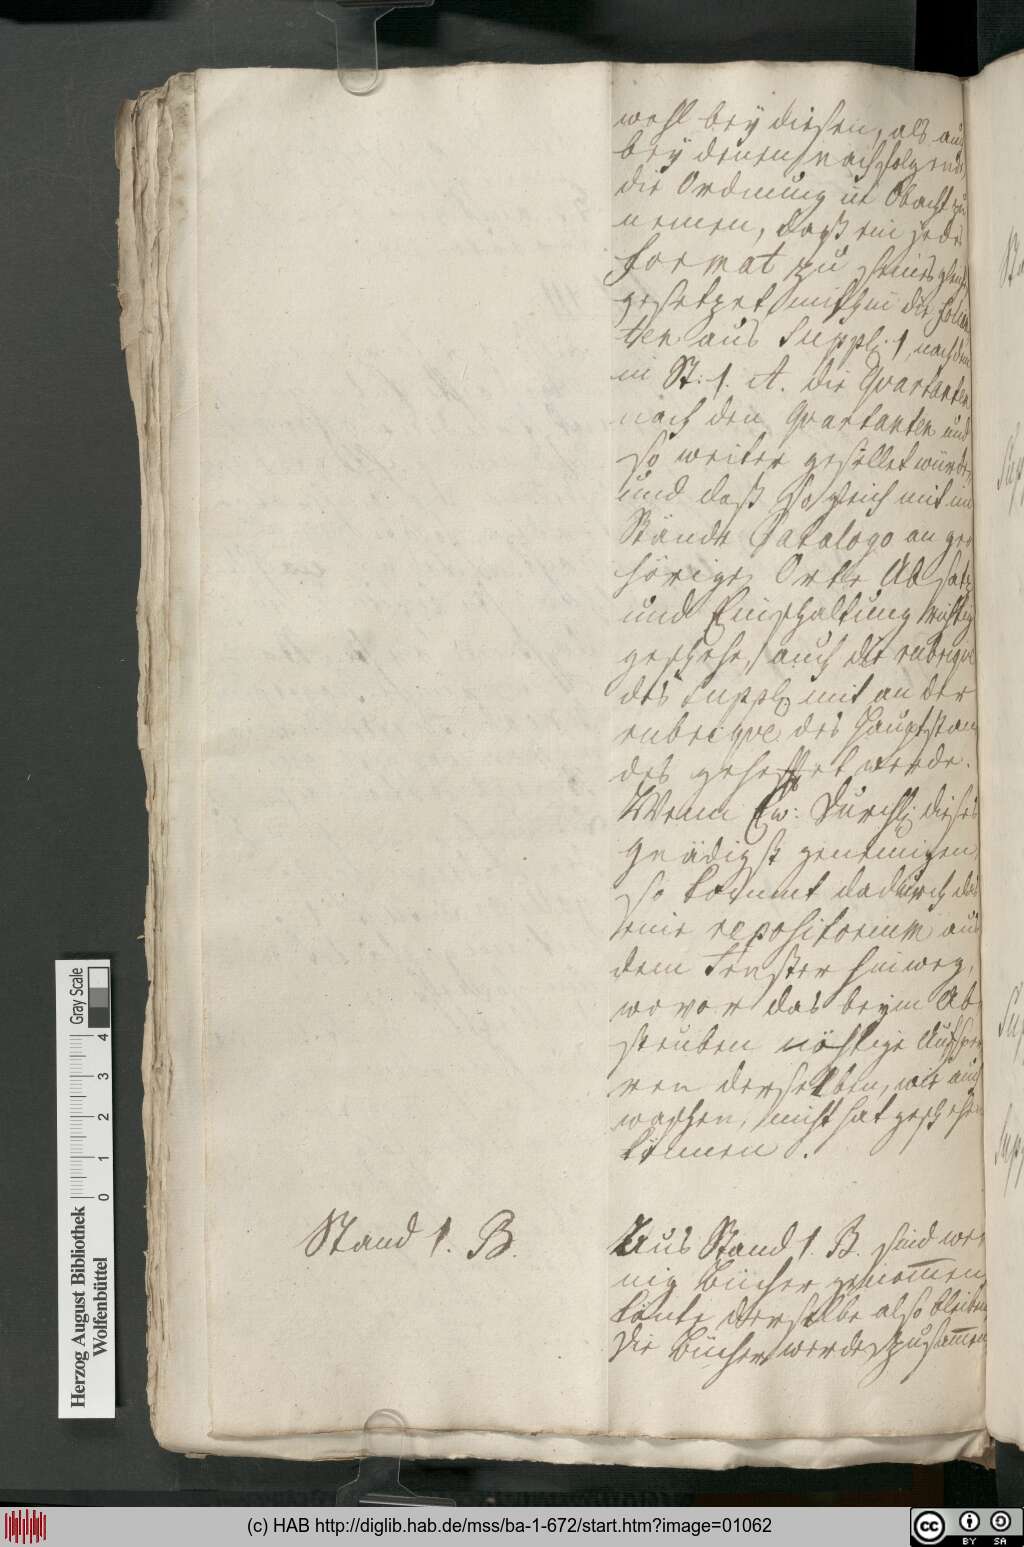 wohl bey diesen, als auch
bey denen nachfolgende
die Ordnung in Obacht zu
nemen, daß ein jedes
format zu seines gleich
gesetzet mithin die folian
ten aus Suppl. 1 nach den
in St: 1. A. die Qvartanten
nach den Qvartanten und
so weiter gestellet würde,
und daß sogleich mit im
Stands Catalogo an ge
hörige Orte Absatz
und Einschaltung richtig
geschehe, auch die rubriqve
des Suppl. mit an der
rubriqve des Hauptstan
des geheftet werde.
Wenn Ew: Durchl. dieses
gnädigst genemigen,
so kommt dadurch das
eine repositorium aus
dem Fenster hinweg,
wovor das beym Ab
steuben nöhtige Aufsper
ren derselben, wie auch
waschen, nicht hat geschehen
können.
Stand 1. B.
Aus Stand 1. B. sind we
nig Bücher genommen,
könte derselbe also bleiben
Die Bücher werden zusammen
Herzog August Bibliothek
Wolfenbüttel
0 1 2 3 4
Gray Scale
(c) HAB http://diglib.hab.de/mss/ba-1-672/start.htm?image=01062
cc BY SA